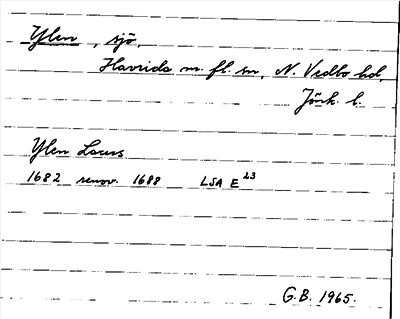 Ylen, sjö,
Havrida m. fl. sn, N. Vedbo hd,
Jönk. l.
Ylen Lacus
1682 renov. 1688 LSA E 23
G.B. 1965.